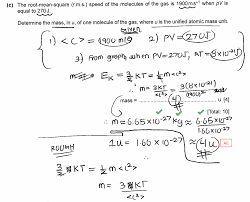 (c) The root-mean-square (r.m.s.) speed of the molecules of the gas is 1900 ms⁻¹ when pV is
equal to 270J.
Determine the mass, in u, of one molecule of the gas, where u is the unified atomic mass unit.
GIVEN
1) <c> = 1900 m/s 2) PV = 270J
3) from graph when PV=270J, KT = 8×10⁻²¹J
E_K = 3/2 KT = 1/2 m<c²>
m = 3KT/<c²> = 3(8×10⁻²¹)/(1900)²
mass = 4 u [4]
[Total: 10]
∴ m = 6.65×10⁻²⁷ kg ≈ 6.65×10⁻²⁷/1.66×10⁻²⁷
1u = 1.60 × 10⁻²⁷ ≈ 4u
ROUGH
3/2 KT = 1/2 m<c²>
m = 3KT/<c²>